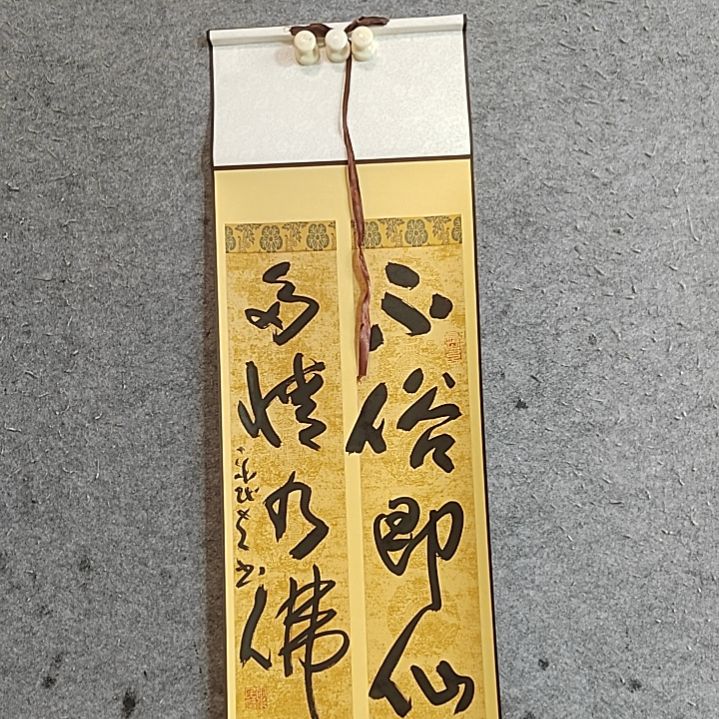 不俗即仙
多情乃佛